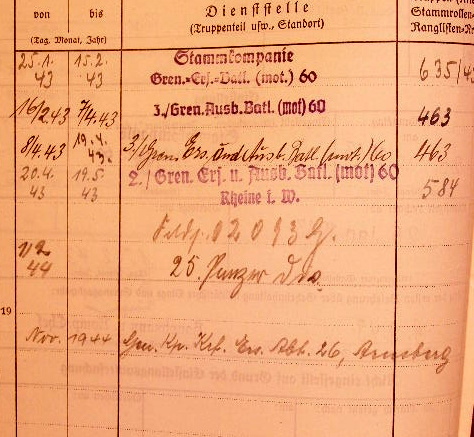 von bis Dienststelle Stammrollen-
(Tag, Monat, Jahr) (Truppenteil usw., Standort) Ranglisten-
25.1. 15.2. Stammkompanie
43 43 Gren.=Ers.=Batl. (mot.) 60 635/43
16/2.43 7/4.43 3./Gren.Ausb.Batl.(mot) 60 463
8/4.43 19.4. 3/Gren. Ers. und Ausb. Batl. (mot.) 60 463
43.
20.4. 19.5 2./Gren. Ers. u. Ausb. Batl. (mot) 60 584
43 43 Rheine i. W.
Feldp. 02093
1/2 25. Panzer Div.
44
19
Nov. 1944 Gen. Kp. Ers. Abt. 26, Arnsberg